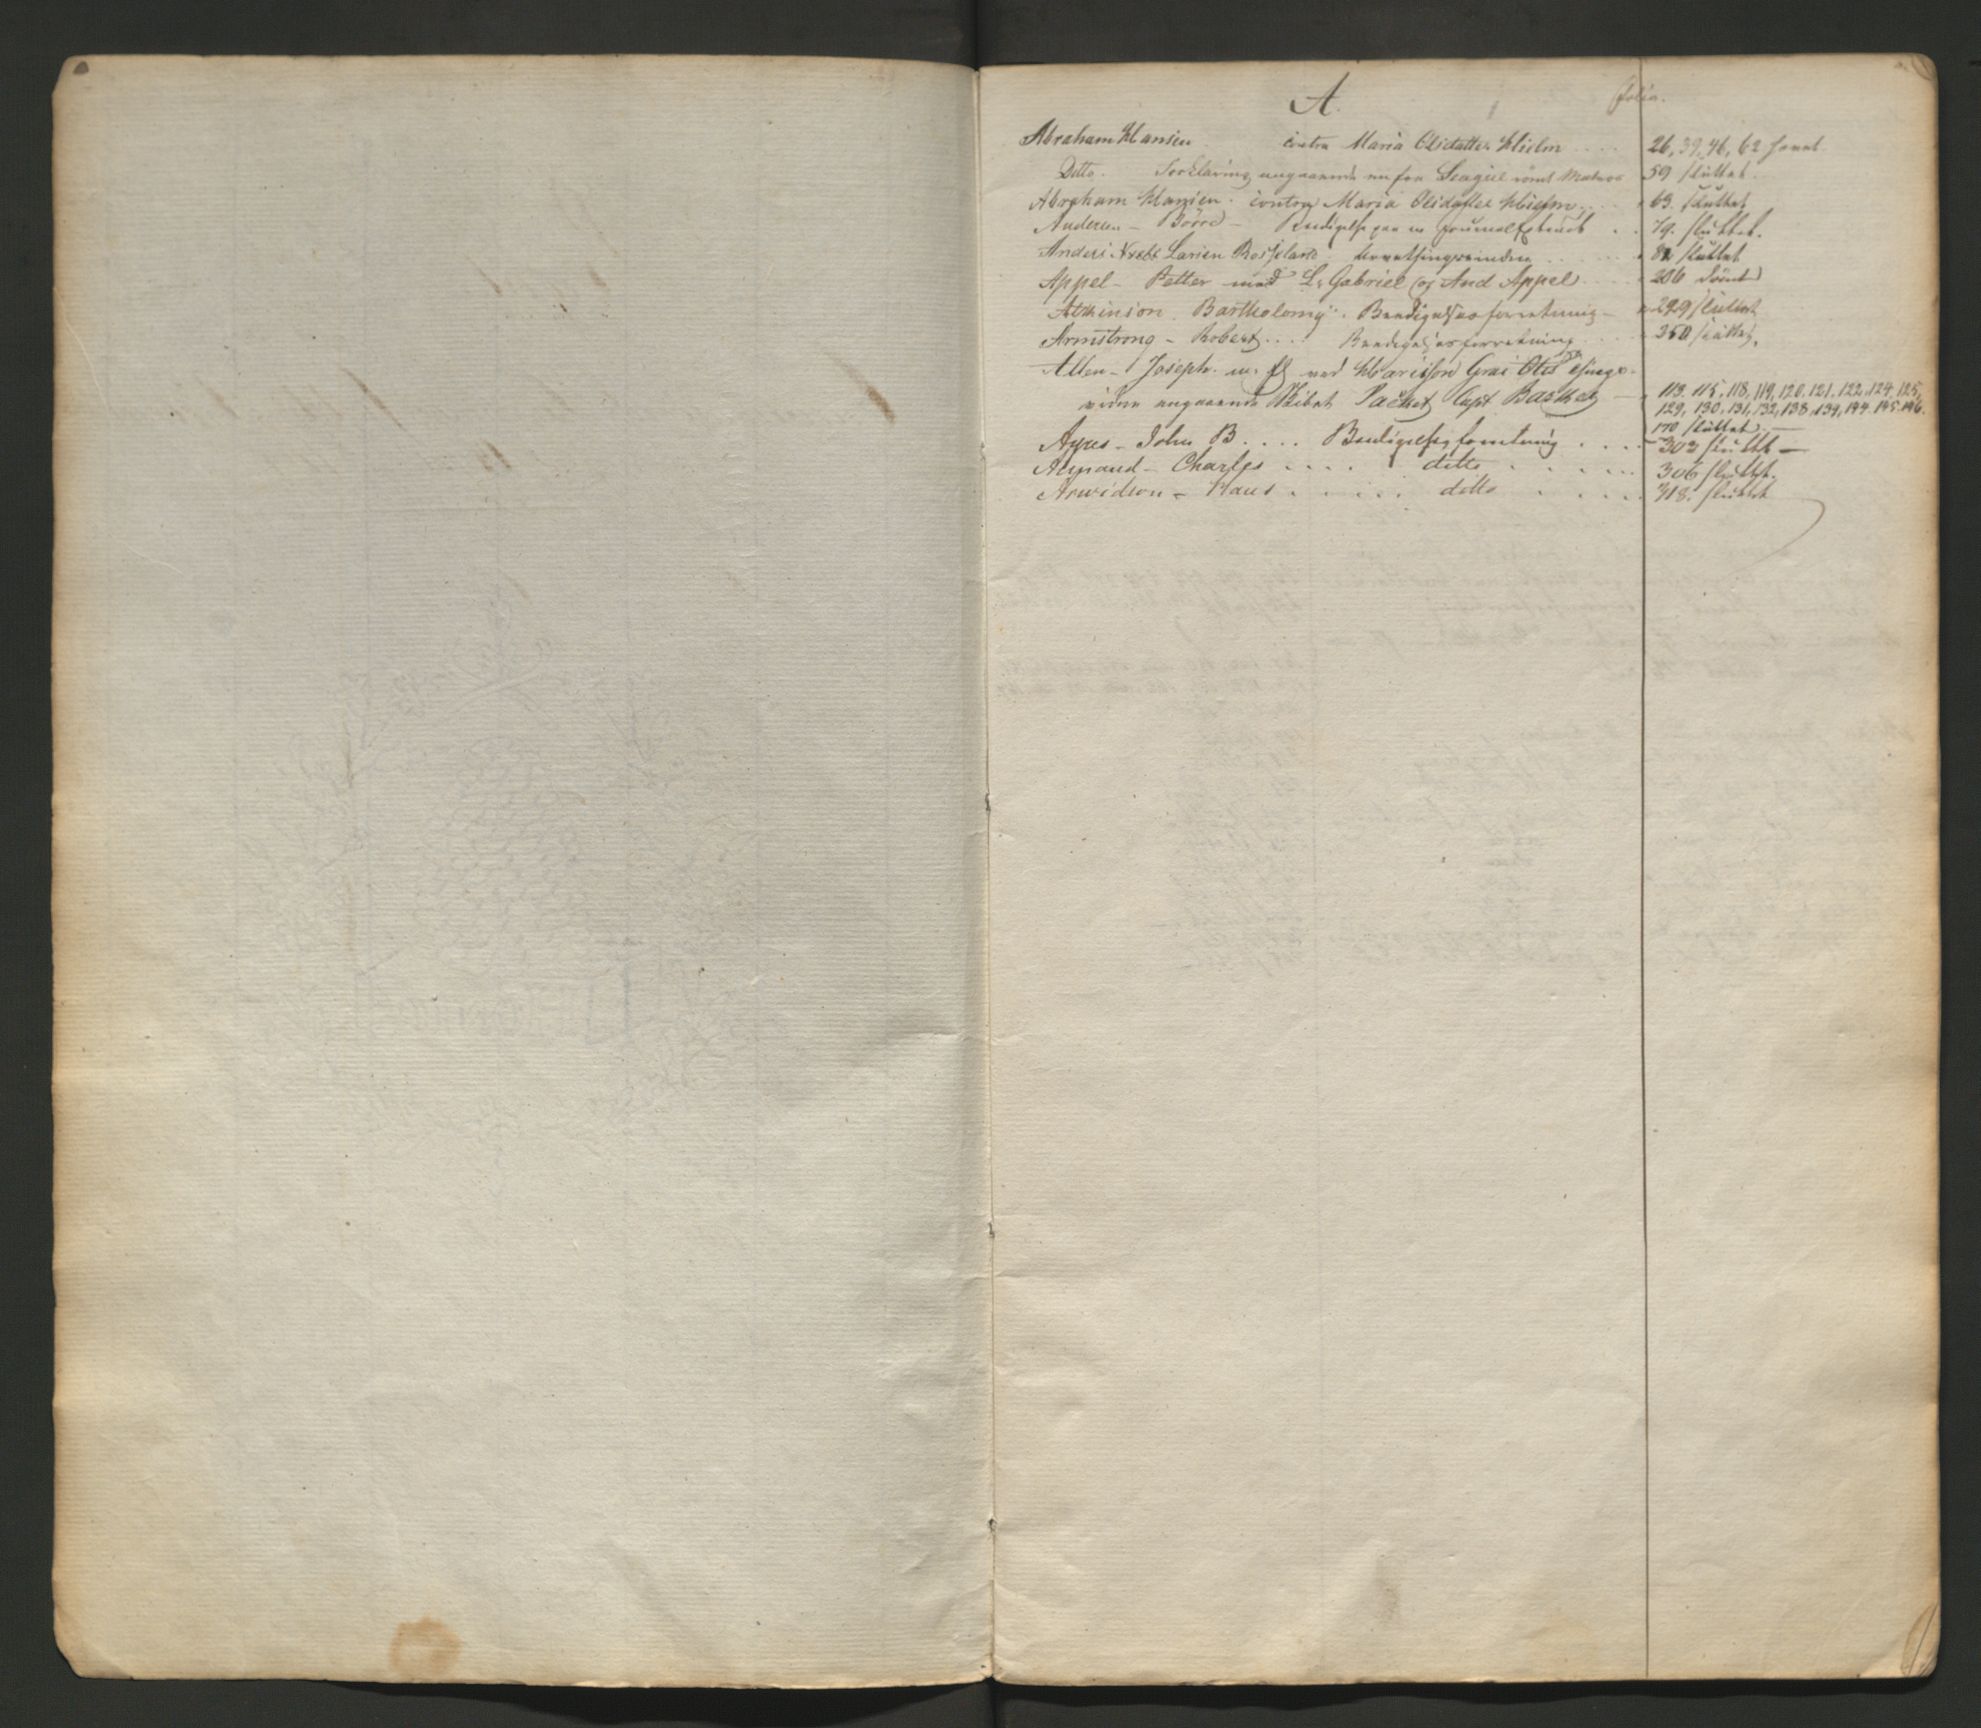 A.
folio.
Abraham Hansen contra Maria Olsdatter Hielm .... 26, 39, 46, 62
Ditto. Forklaring angaaende en fra Seagul römt Matros 59 sluttet.
Abraham Hansen. contra Maria Olsdatter Hielm .... 63. sluttet
Andersen - Börre - Beedigelse paa en 79. sluttet.
Anders Larsen Rosseland. 82 sluttet
Appel - Petter med L: Gabriel og And Appel .... 206 Dömt
Atkinson Bartholomy. Beedigelsesforretning - 299 sluttet
Armstrong - Robert .... Beedigelsesforretning .... 350 sluttet.
Allen - Joseph m. fl ved Harrison Grai Otis
angaaende Skibet Packet Capt Basket - 113. 115. 118, 119, 120, 121. 122. 124. 125,
129, 130, 131, 132, 138, 139, 144. 145. 146.
170 sluttet. -
Ayres - John B. .... Beedigelsesforretning .... 302 sluttet -
Charles .... ditto .... 306 sluttet.
Arwidson - Hans .... ditto .... 318. sluttet